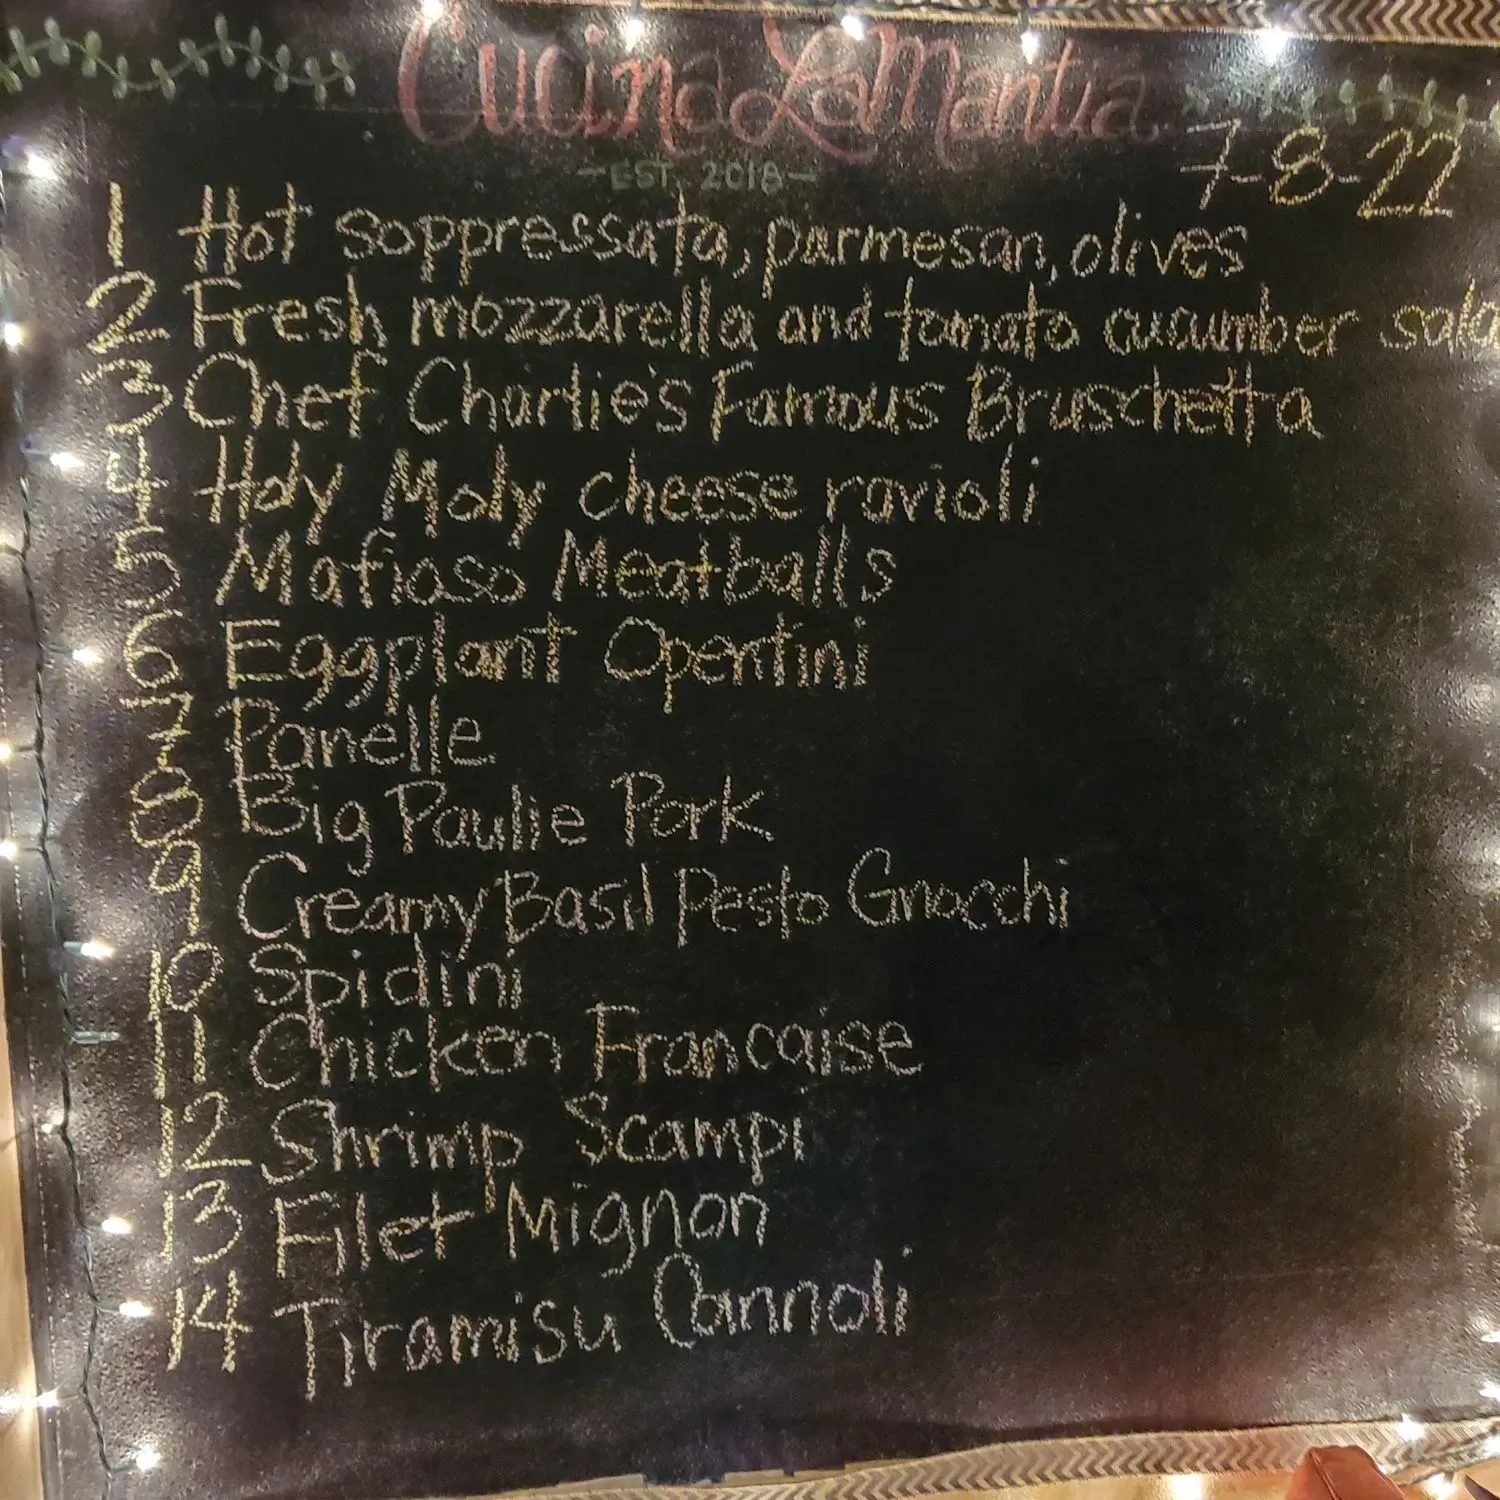 Cucina LaMantia
-EST. 2018-
7-8-22
1 Hot soppressata, parmesan, olives
2 Fresh mozzarella and tomato cucumber sala
3 Chef Charlie's Famous Bruschetta
4 Holy Moly cheese ravioli
5 Mafioso Meatballs
6 Eggplant Opentini
7 Panelle
8 Big Paulie Pork
9 Creamy Basil Pesto Gnocchi
10 Spidini
11 Chicken Francaise
12 Shrimp Scampi
13 Filet Mignon
14 Tiramisu Cannoli